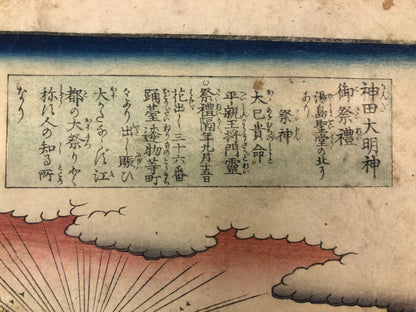 神田大明神
御祭禮
湯島聖堂の北に
あり
祭神
大己貴命
平親王将門靈
祭禮隔年九月十五日
花出し三十六番
踊臺漆物等町
々より出し賑ひ
大かたならず江
都の大祭りにて
称は人の知る所
なり